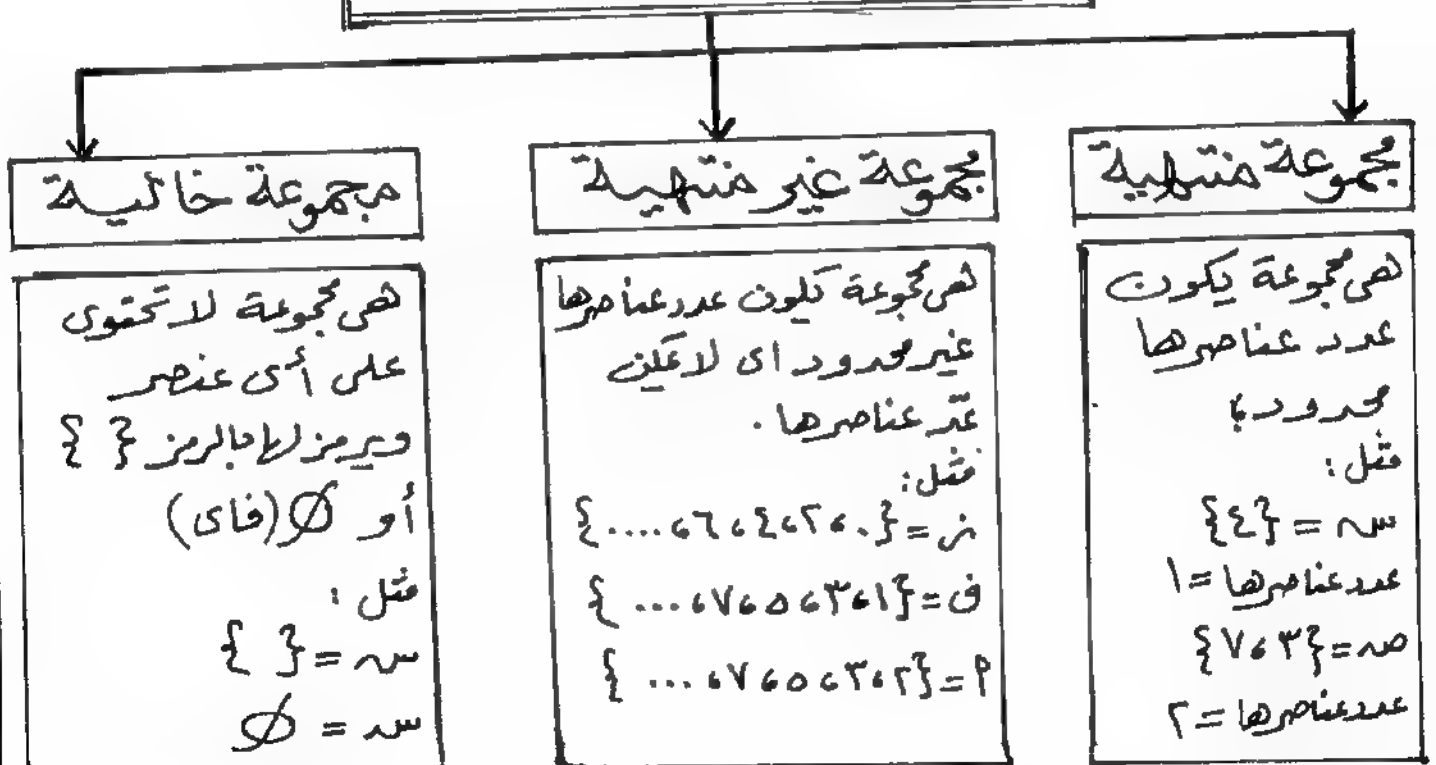 مجموعة منتهية
هى مجموعة يكون
عدد عناصرها
محدودا
مثل:
سـ = {٤}
عدد عناصرها = ١
صـ = {٣، ٧}
عدد عناصرها = ٢
مجموعة غير منتهية
هى مجموعة تكون عدد عناصرها
غير محدود اى لا يمكن
عدّ عناصرها.
مثل:
ز = {٠، ٢، ٤، ٦، ....}
ف = {١، ٣، ٥، ٧، ... }
م = {٢، ٣، ٥، ٧، ... }
مجموعة خالية
هى مجموعة لا تحتوى
على أى عنصر
ويرمز لها بالرمز { }
أو Ø (فاى)
مثل:
سـ = { }
سـ = Ø